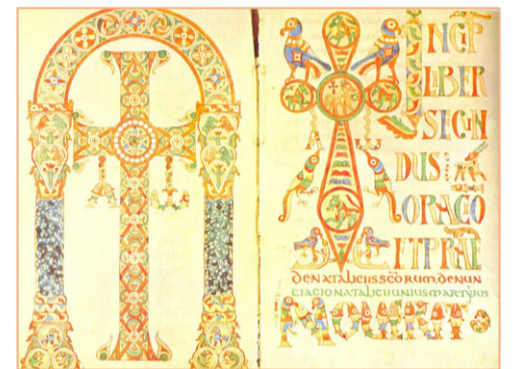 A ω
A ω
INCP
LIBER
SECUN
DUS
ORACO
ET PRAE
DENATALICIISSCORUM.DENUN
CIACIONATALICIIUNIUSMARTYRIS